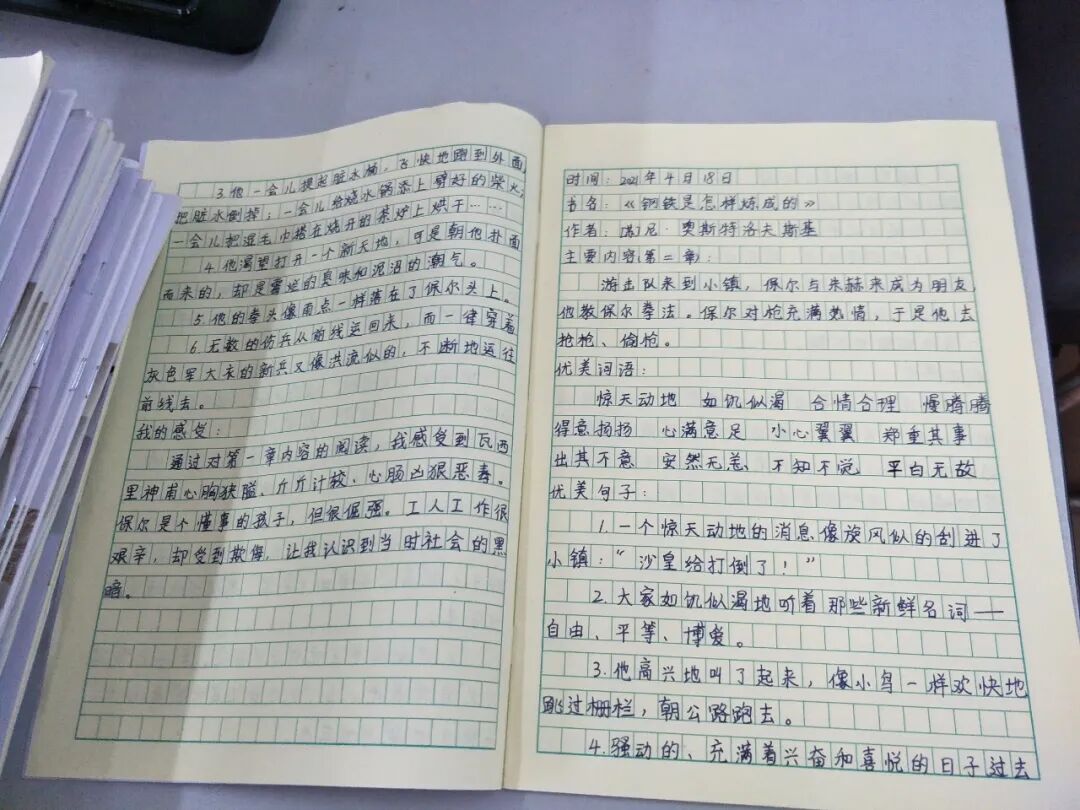 3.他一会儿提起脏水桶，飞快地跑到外面，
把脏水倒掉；一会儿给烧水锅添上劈好的柴火；
一会儿把湿毛巾搭在烧开的茶炉上烘干……
4.他渴望打开一个新天地，可是朝他扑面
而来的，却是霉烂的臭味和泥沼的潮气。
5.他的拳头像雨点一样落在了保尔头上。
6.无数的伤兵从前线运回来，而一律穿着
灰色军大衣的新兵又像洪流似的，不断地运往
前线去。
我的感受：
通过对第一章内容的阅读，我感受到瓦西
里神甫心胸狭隘、斤斤计较、心肠凶狠恶毒。
保尔是个懂事的孩子，但很倔强。工人工作很
艰辛，却受到欺侮，让我认识到当时社会的黑
暗。
时间：2021年4月18日
书名：《钢铁是怎样炼成的》
作者：尼·奥斯特洛夫斯基
主要内容（第二章）：
游击队来到小镇，保尔与朱赫来成为朋友，
他教保尔拳法。保尔对枪充满热情，于是他去
抢枪、偷枪。
优美词语：
惊天动地 如饥似渴 合情合理 慢腾腾
得意扬扬 心满意足 小心翼翼 郑重其事
出其不意 安然无恙 不知不觉 平白无故
优美句子：
1.一个惊天动地的消息像旋风似的刮进了
小镇：“沙皇给打倒了！”
2.大家如饥似渴地听着那些新鲜名词——
自由、平等、博爱。
3.他高兴地叫了起来，像小鸟一样欢快地
跳过栅栏，朝公路跑去。
4.骚动的、充满着兴奋和喜悦的日子过去